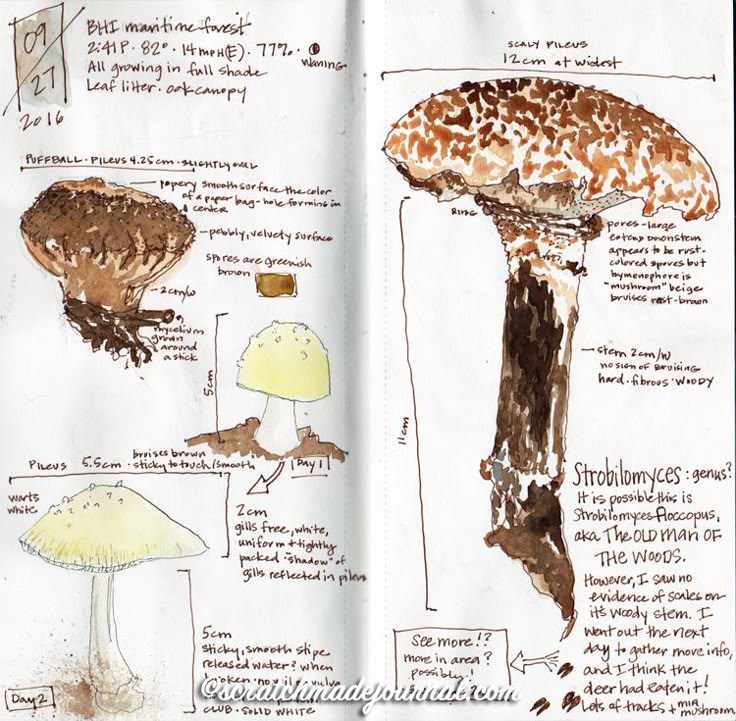 09
27
2016
BHI maritime forest
2:41P · 82° · 14mpH(E) · 77% ·
Waning
All growing in full shade
Leaf litter · oak canopy
PUFFBALL · PILEUS 4.25cm · SLIGHTLY OVAL
papery smooth surface the color
of a paper bag - hole forming in
center
pebbly, velvety surface
spores are greenish
brown
2cm/w
mycelium
grown
around
a stick
5cm
bruises brown
sticky to touch/smooth
Day 1
PILEUS 5.5cm
warts
white
2cm
gills free, white,
uniform + tightly
packed "shadow" of
gills reflected in pileus
5cm
sticky, smooth stipe
released water? when
broken · no
CLUB · SOLID WHITE
Day 2
SCALY PILEUS
12cm at widest
RING
pores - large
extend downstem
appears to be rust-
colored spores but
hymenophore is
"mushroom" beige
bruises rust-brown
11cm
stem 2cm/w
no sign of bruising
hard · fibrous · WOODY
Strobilomyces: genus?
It is possible this is
Strobilomyces floccopus,
aka THE OLD MAN OF
THE WOODS.
However, I saw no
evidence of scales on
it's woody stem. I
went out the next
day to gather more info,
and I think the
deer had eaten it!
Lots of tracks + mia
mushroom
See more!?
more in area?
possibly!
@scratchmadejournal.com